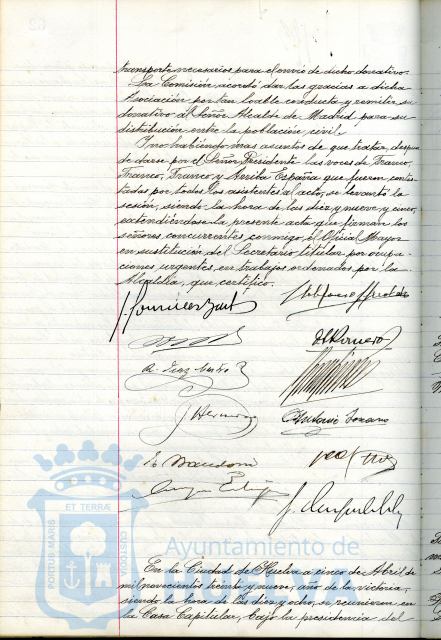 transporte necesarios para el envio de dicho donativo.
La Comisión acordó dar las gracias a dicha
Asociación por tan loable conducta y remitir su
donativo al Señor Alcalde de Madrid para su
distribución entre la población civil.
Y no habiendo mas asuntos de que tratar, despues
de darse por el Señor Presidente las voces de Franco,
Franco, Franco y Arriba España que fueron contes-
tadas por todos los asistentes al acto, se levantó la
sesión, siendo la hora de las diez y nueve y cinco,
extendiéndose la presente acta que firman los
señores concurrentes conmigo el Oficial Mayor
en sustitución del Secretario titular por ocupa-
ciones urgentes en trabajos ordenados por la
Alcaldía, que certifico.
Romero
A. Diaz
J. Hermoso
Antonio Lozano
PORTUS MARIS
ET TERRÆ
CUSTODIA
Ayuntamiento de
HUELVA
En la Ciudad de Huelva a cinco de Abril de
mil novecientos treinta y nueve, año de la victoria,
siendo la hora de las diez y ocho, se reunieron en
la Casa Capitular, bajo la presidencia del